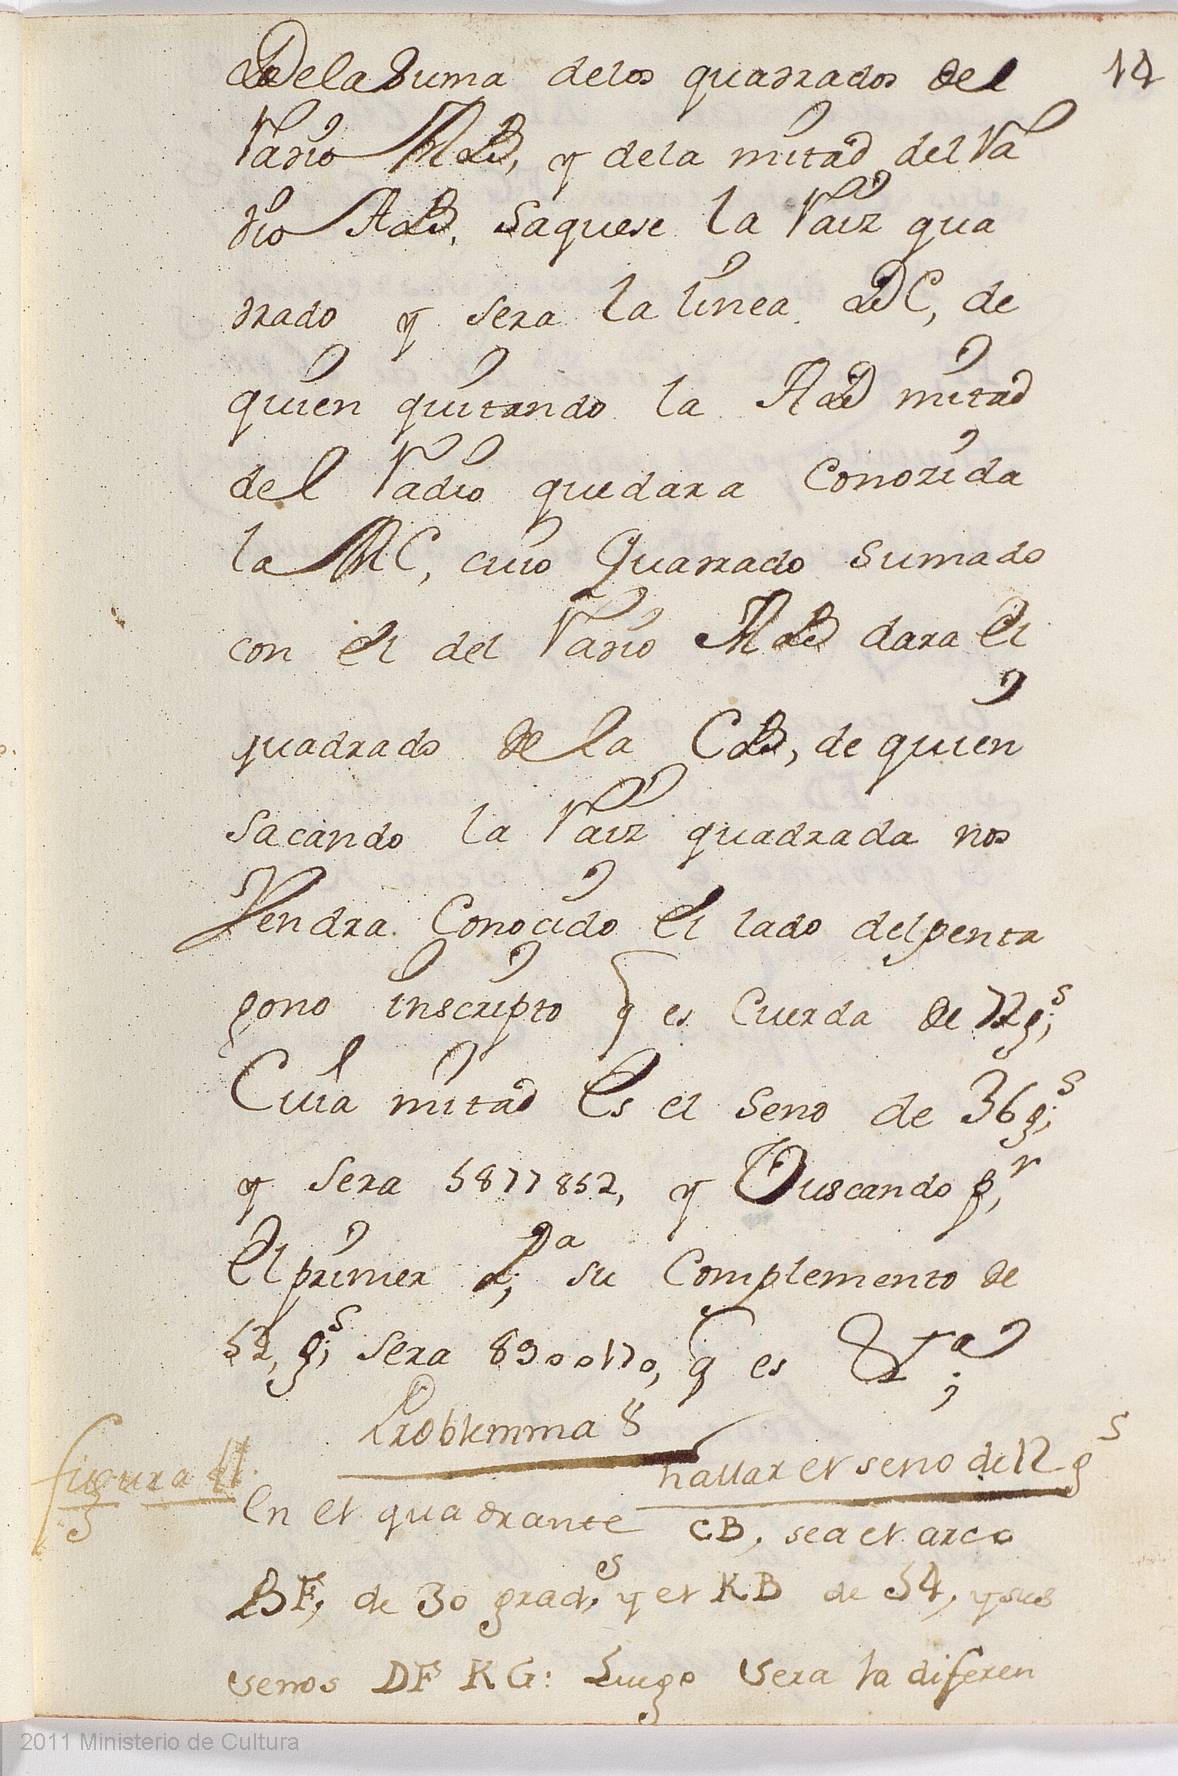 14
De la suma delos quadrados del
Radio AB, y dela mitad del Ra
dio AB. saquese la Raiz qua
drado y sera la linea DC, de
quien quitando la AD mitad
del Radio quedara conozida
la AC, cuio Quadrado sumado
con el del Radio AB dara el
quadrado de la CB, de quien
sacando la Raiz quadrada nos
Vendra Conocido el lado del penta
gono inscripto q es Cuerda de 72 g.s
Cuia mitad Es el Seno de 36 g.s
y sera 5877852, y Buscando p.r
El primer su Complemento de
52, g.s sera 8900170, q es &.ta
Problemma 8
hallar el seno de 12 g.s
figura 11.
En el quadrante CB, sea el arco
BF, de 30 grad.s y el KB de 54, y sus
senos DF KG: Luego sera la diferen
2011 Ministerio de Cultura